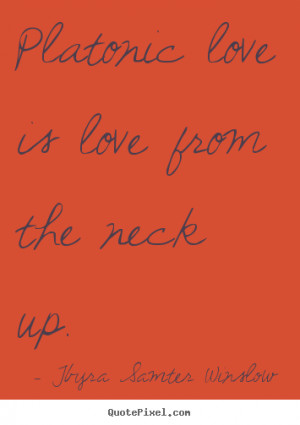 Platonic love
is love from
the neck
up.
- Thyra Samter Winslow
QuotePixel.com